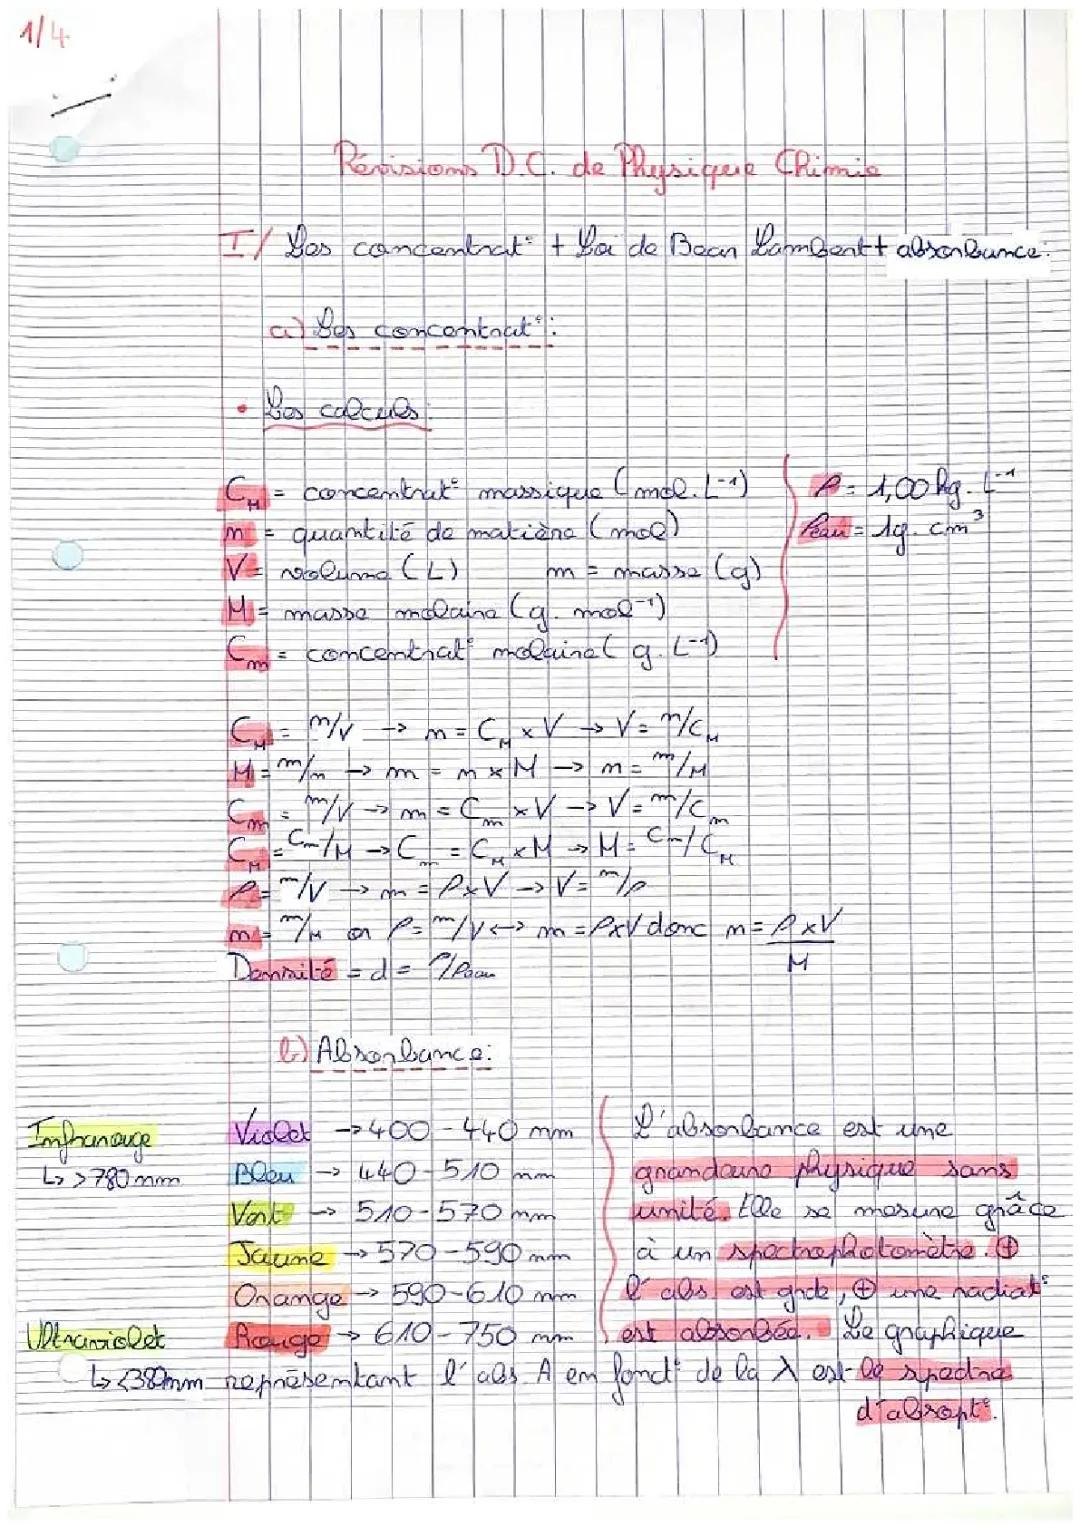 1/4
Révisions D.C. de Physique Chimie
I/ Les concentrat° + Loi de Bear Lambert + absorbance:
a) Les concentrat°:
• Les calculs:
C_M = concentrat° massique (mol.L⁻¹)
n = quantité de matière (mol)
V = volume (L) m = masse (g)
M = masse molaire (g. mol⁻¹)
C_m = concentrat° molaire (g. L⁻¹)
ρ = 1,00 kg. L⁻¹
ρeau = 1g. cm³
C_M = n/V → n = C_M × V → V = n/C_M
M = m/n → m = n × M → n = m/M
C_m = m/V → m = C_m × V → V = m/C_m
C_M = C_m/M → C_m = C_M × M → M = C_m/C_M
ρ = m/V → m = ρ×V → V = m/ρ
n = m/M or ρ = m/V ↔ m = ρ×V donc n = ρ×V/M
Densité = d = ρ/ρeau
b) Absorbance:
Infrarouge
↳ >780 nm
Violet → 400 - 440 nm
Bleu → 440-510 nm
Vert → 510-570 nm
Jaune → 570-590 nm
Orange → 590-610 nm
Rouge → 610-750 nm
Ultraviolet
↳ <380nm
L'absorbance est une
grandeure physique sans
unité. Elle se mesure grâce
à un spectrophotomètre. ⊕
l'abs est grde, ⊕ une radiat°
est absorbée. Le graphique
représentant l'abs A en fonct° de la λ est le spectre
d'absropt°.